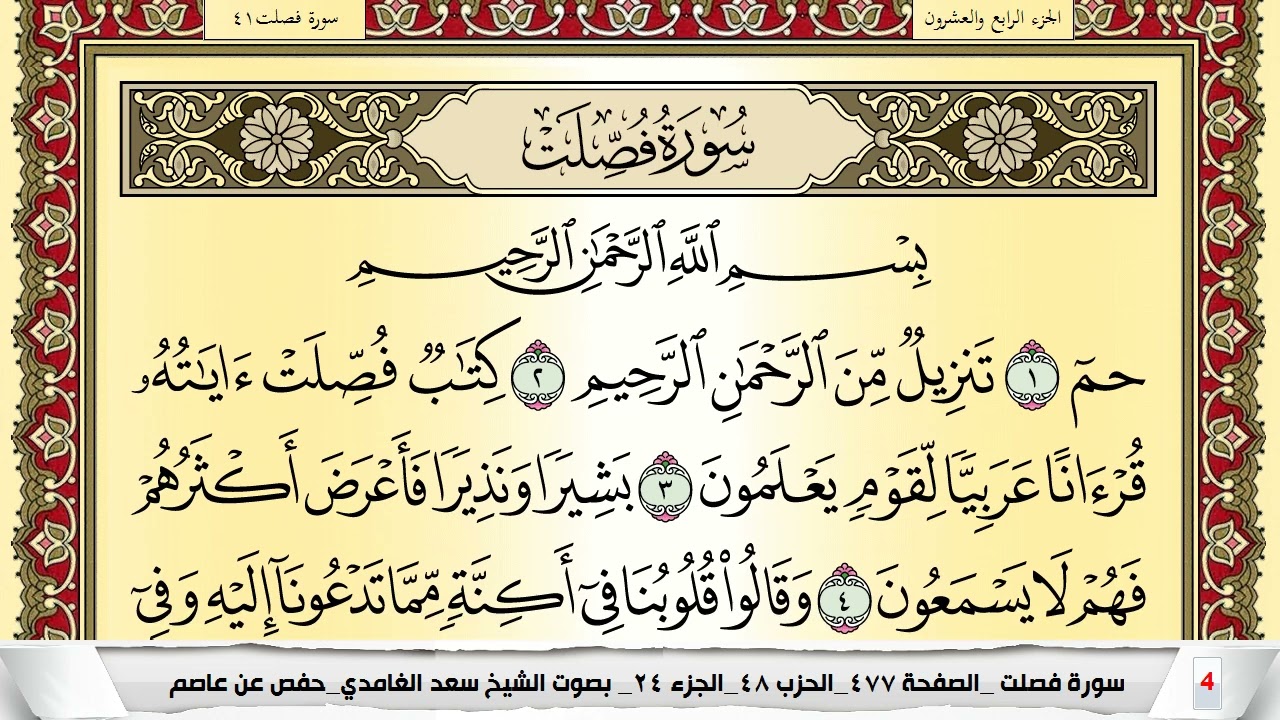 الجزء الرابع والعشرون
سورة فصلت٤١
سُورَةُ فُصِّلَتْ
بِسْمِ ٱللَّهِ ٱلرَّحْمَٰنِ ٱلرَّحِيمِ
حمٓ ١ تَنزِيلٌ مِّنَ ٱلرَّحْمَٰنِ ٱلرَّحِيمِ ٢ كِتَٰبٌ فُصِّلَتْ ءَايَٰتُهُۥ
قُرْءَانًا عَرَبِيًّا لِّقَوْمٍ يَعْلَمُونَ ٣ بَشِيرًا وَنَذِيرًا فَأَعْرَضَ أَكْثَرُهُمْ
فَهُمْ لَا يَسْمَعُونَ ٤ وَقَالُوا۟ قُلُوبُنَا فِىٓ أَكِنَّةٍ مِّمَّا تَدْعُونَآ إِلَيْهِ وَفِىٓ
سورة فصلت _الصفحة ٤٧٧_الحزب ٤٨_الجزء ٢٤_ بصوت الشيخ سعد الغامدي_حفص عن عاصم
4